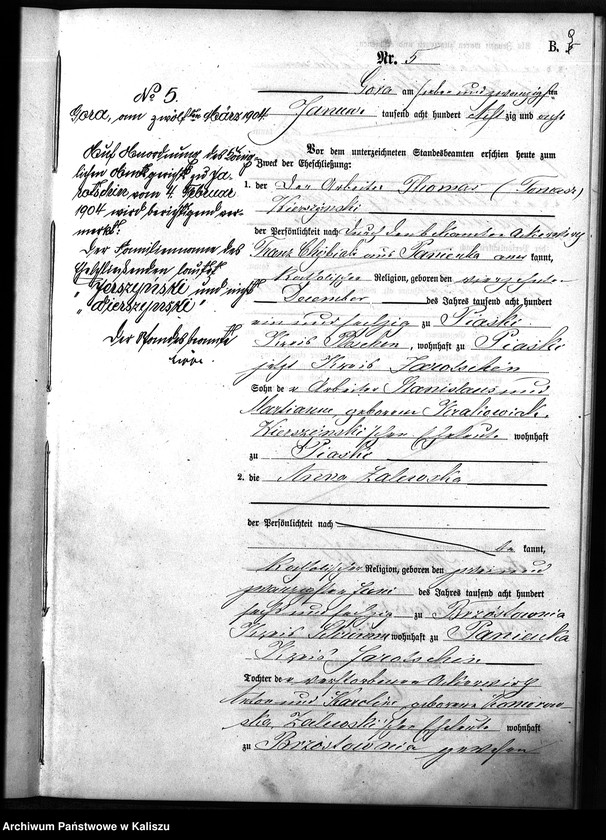 B. 5
Nr. 5
Gora am sechs und zwanzigsten
Januar tausend acht hundert acht zig und acht
Vor dem unterzeichneten Standesbeamten erschien heute zum
Zweck der Eheschließung:
1. der Der Arbeiter Thomas (Tomasz)
Kierszynski
der Persönlichkeit nach durch den bekannten Ackerwirth
Franz aus Panienka kannt,
katholischer Religion, geboren den vierzehnten
December des Jahres tausend acht hundert
ein und sechzig zu Piaski
Kreis Pleschen, wohnhaft zu Piaski
jetzt Kreis Jarotschin
Sohn der Arbeiter Stanislaus und
Marianna, geborene Krakowiak
Kierszynski'schen Eheleute wohnhaft
zu Piaski
2. die Anna Zalewska
der Persönlichkeit nach
be kannt,
katholischer Religion, geboren den zwei und
zwanzigsten Juni des Jahres tausend acht hundert
sechs und sechzig zu Brzostownia
Kreis Schrimm wohnhaft zu Panienka
Kreis Jarotschin
Tochter der verstorbenen Ackerwirth
Anton und Karoline, geborene Komorow-
ska, Zalewski'schen Eheleute wohnhaft
zu Brzostownia gewesen
No 5.
Gora, am zwölften März 1904.
Auf Anordnung des König-
lichen Amtsgerichts zu Ja-
rotschin vom 4. Februar
1904 wird berichtigend ver-
merkt:
Der Familienname des
Eheschließenden lautet
"Jerszyński" und nicht
"Kierszynski".
Der Standesbeamte
Archiwum Państwowe w Kaliszu